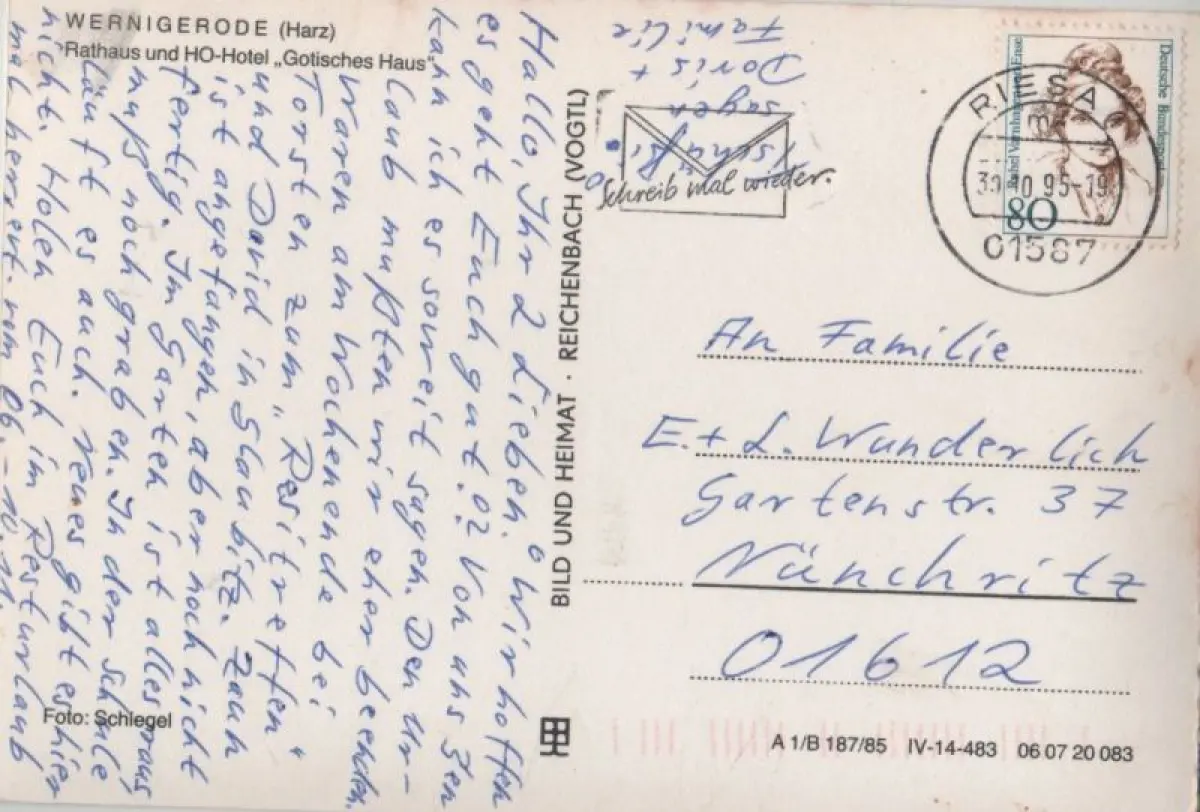 WERNIGERODE (Harz)
Rathaus und HO-Hotel „Gotisches Haus"
Hallo, Ihr 2 Lieben! Wir hoffen
es geht Euch gut.
Von uns 3en
kann ich es soweit sagen. Den Ur-
laub mußten wir eher beenden.
Waren am Wochenende bei
Torsten zum „Resitreffen"
und David in Glaubitz. Zaun
ist angefangen, aber noch nicht
fertig. Im Garten ist alles raus,
muß noch graben. In der Schule
läuft es auch. Neues gibt es hier
nicht. Holen Euch im Resturlaub
mal her
vom 06.-10.11.
Tschüßi
sagen
Doris +
Familie
Foto: Schlegel
BILD UND HEIMAT · REICHENBACH (VOGTL)
Schreib mal wieder.
Deutsche Bundespost
Rahel Varnhagen von Ense
80
RIESA
mc
30.10.95-19
01587
An Familie
E. + L. Wunderlich
Gartenstr. 37
Nünchritz
01612
A 1/B 187/85 IV-14-483 06 07 20 083